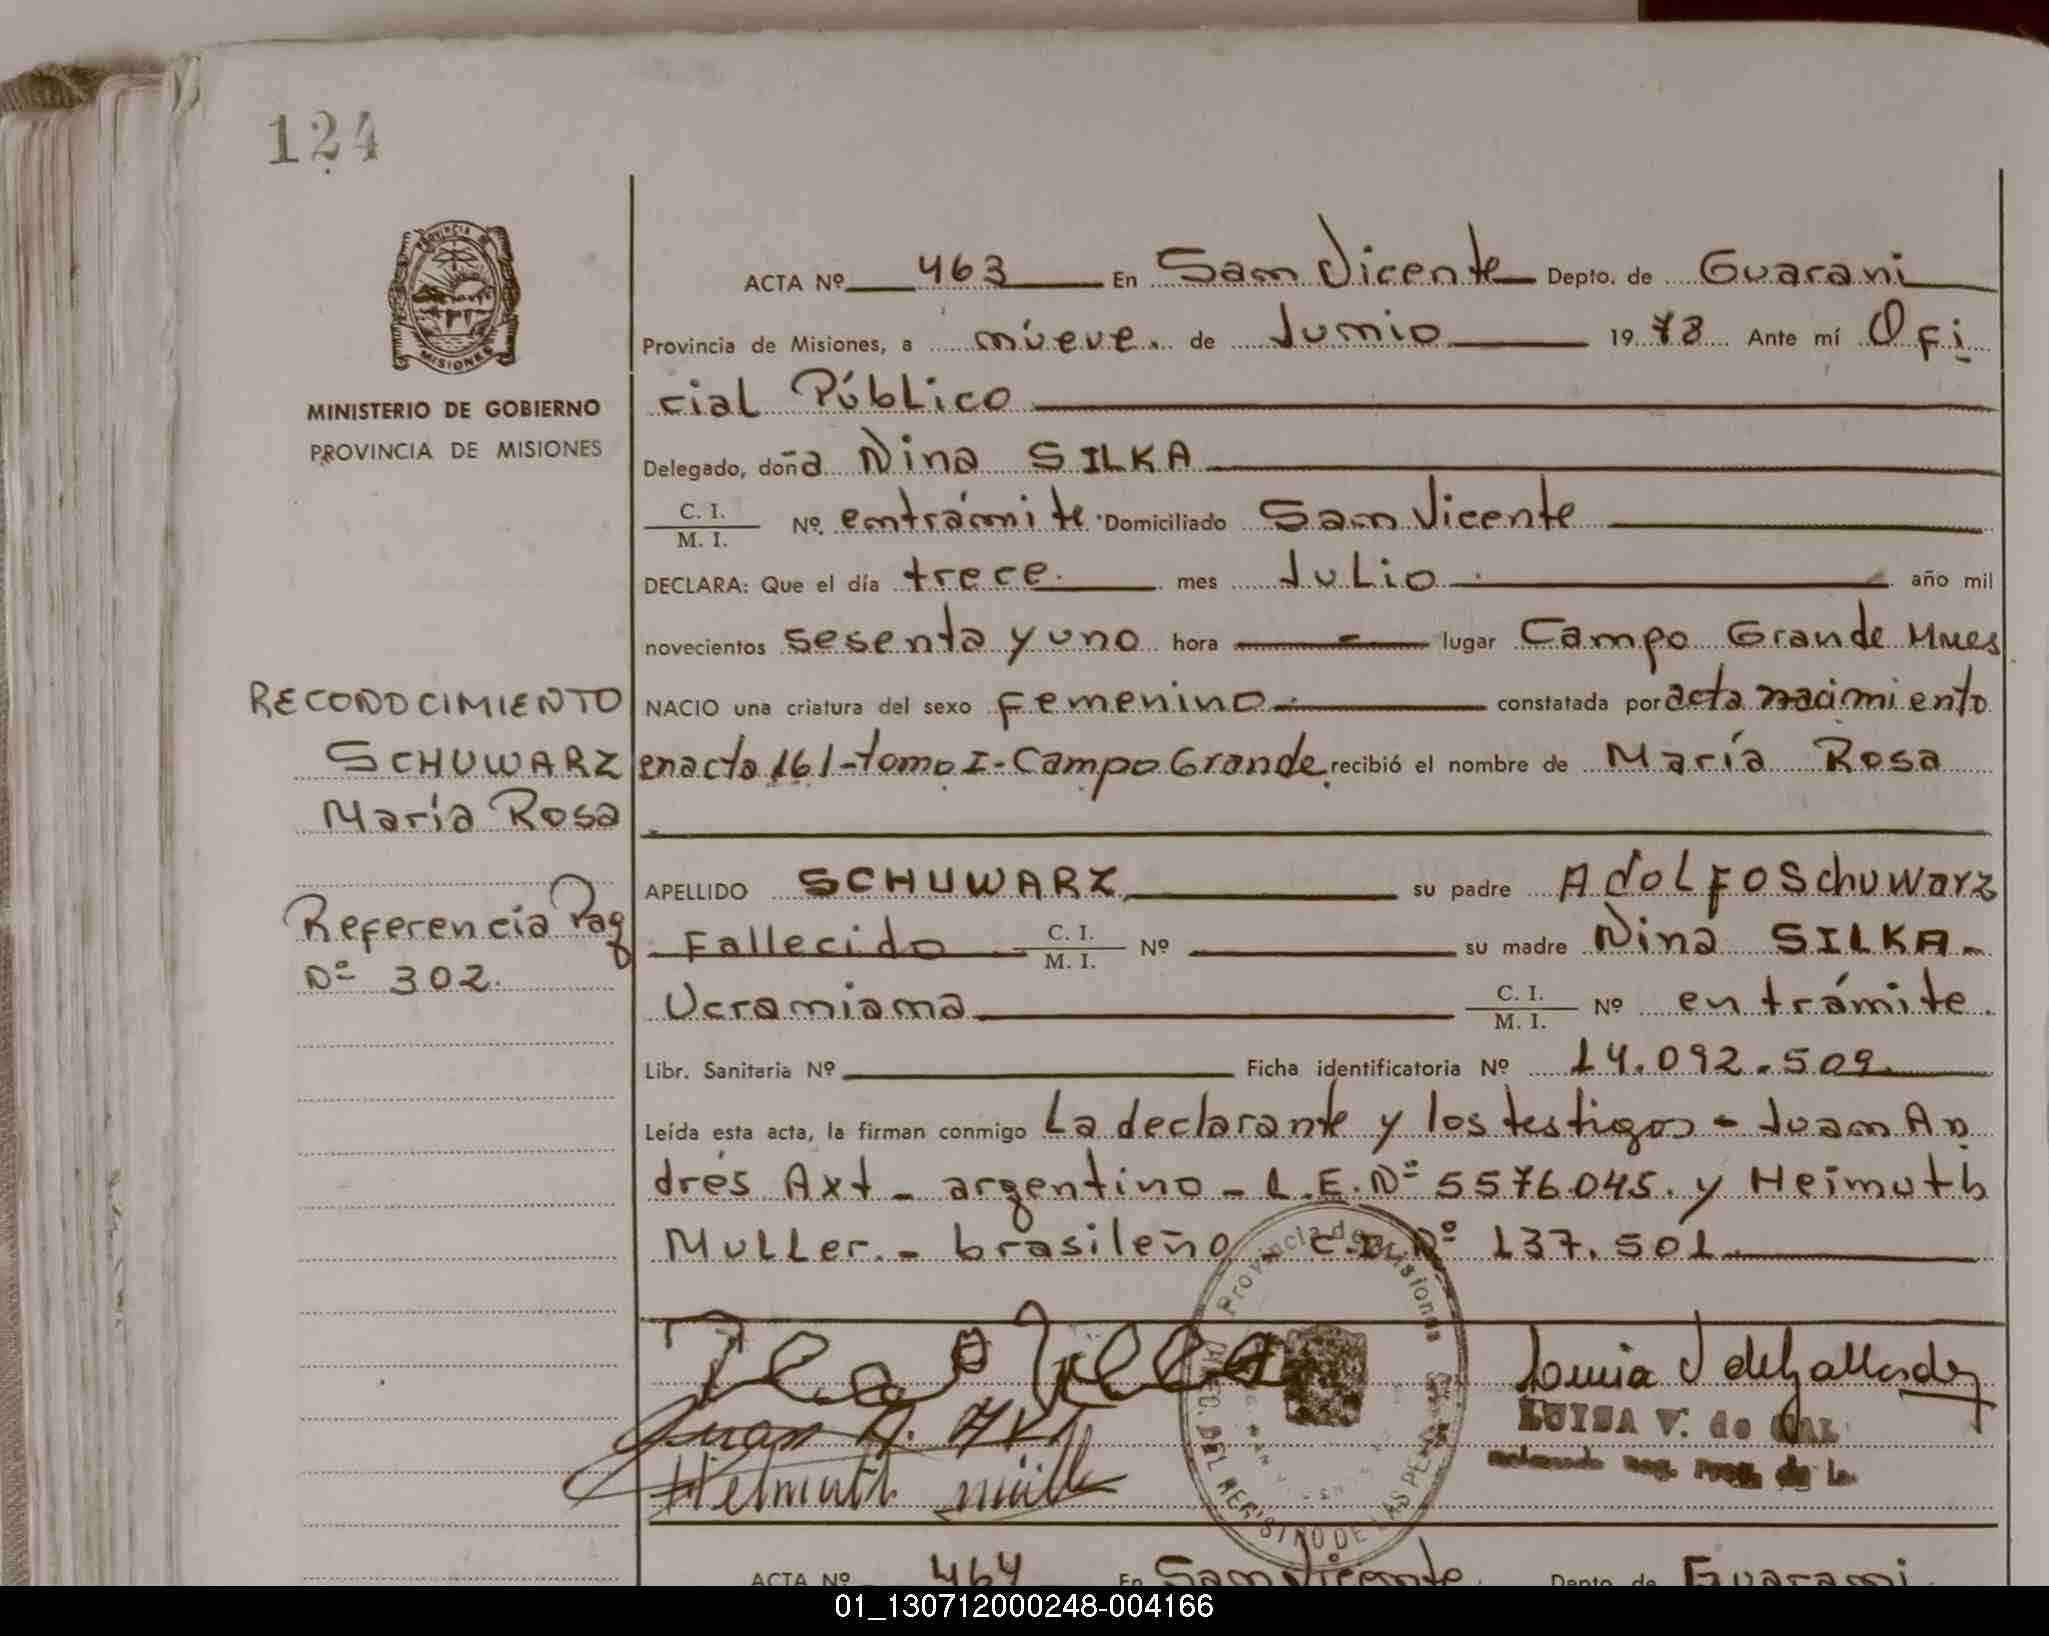 124
PROVINCIA DE
MISIONES
MINISTERIO DE GOBIERNO
PROVINCIA DE MISIONES
RECONOCIMIENTO
SCHUWARZ
María Rosa
Referencia Pag
Nº 302.
ACTA Nº 463 En San Vicente Depto. de Guarani
Provincia de Misiones, a nueve. de Junio 1978 Ante mí Ofi
cial Público
Delegado, doña Nina SILKA
C. I.
M. I. Nº entrámite Domiciliado San Vicente
DECLARA: Que el día trece mes Julio año mil
novecientos sesenta y uno hora lugar Campo Grande Mnes
NACIO una criatura del sexo Femenino constatada por acta nacimiento
en acta 161-tomo I-Campo Grande recibió el nombre de María Rosa
APELLIDO SCHUWARZ su padre Adolfo Schuwarz
Fallecido C. I.
M. I. Nº su madre Nina SILKA-
Ucraniana C. I.
M. I. Nº en trámite.
Libr. Sanitaria Nº Ficha identificatoria Nº 14.092.509
Leída esta acta, la firman conmigo La declarante y los testigos - Juan An
drés Axt - argentino - L.E.Nº 5576.045. y Heimuth
Muller. - brasileño - C.I. Nº 137.501
Provincia de Misiones
DIREC. DEL REGISTRO DE LAS PER
Juan A. Axt
Helmuth Müll
LUISA V. de GAL
ACTA Nº 464 En San Vicente Depto. de Guarani
01_130712000248-004166